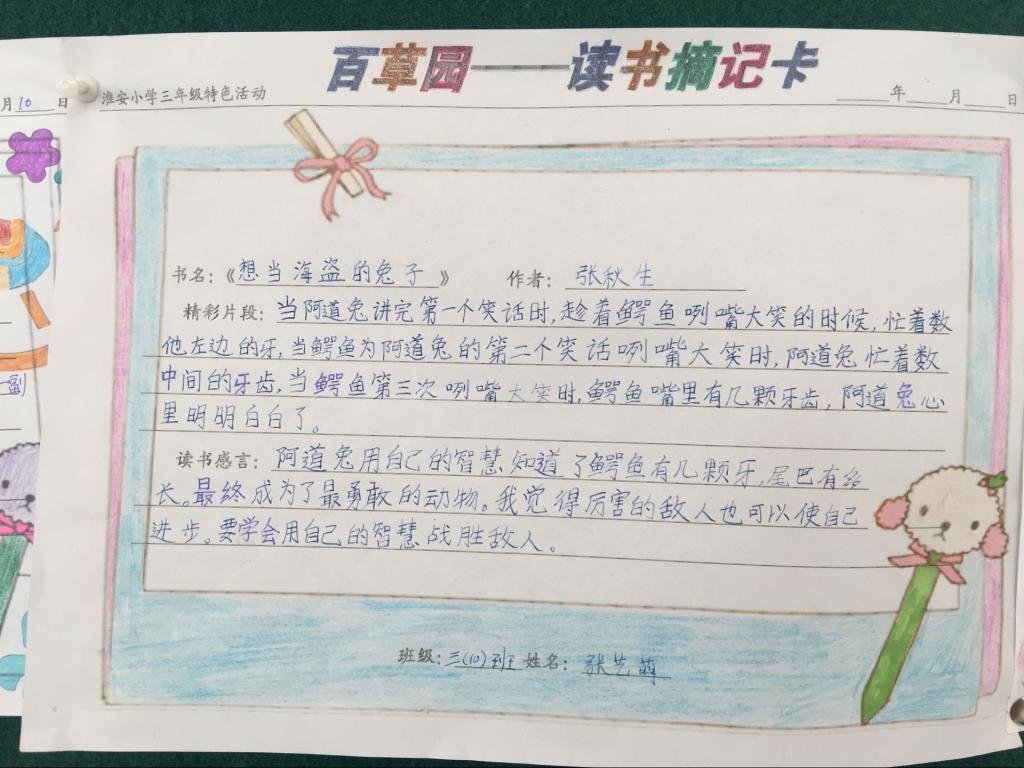 百草园——读书摘记卡
月10日
淮安小学三年级特色活动
年 月 日
书名：《想当海盗的兔子》 作者：张秋生
精彩片段：当阿道兔讲完第一个笑话时，趁着鳄鱼咧嘴大笑的时候，忙着数
他左边的牙，当鳄鱼为阿道兔的第二个笑话咧嘴大笑时，阿道兔忙着数
中间的牙齿，当鳄鱼第三次咧嘴大笑时，鳄鱼嘴里有几颗牙齿，阿道兔心
里明明白白了。
读书感言：阿道兔用自己的智慧知道了鳄鱼有几颗牙，尾巴有多
长。最终成为了最勇敢的动物。我觉得厉害的敌人也可以使自己
进步。要学会用自己的智慧战胜敌人。
班级：三(10)班 姓名：张艺萌
副